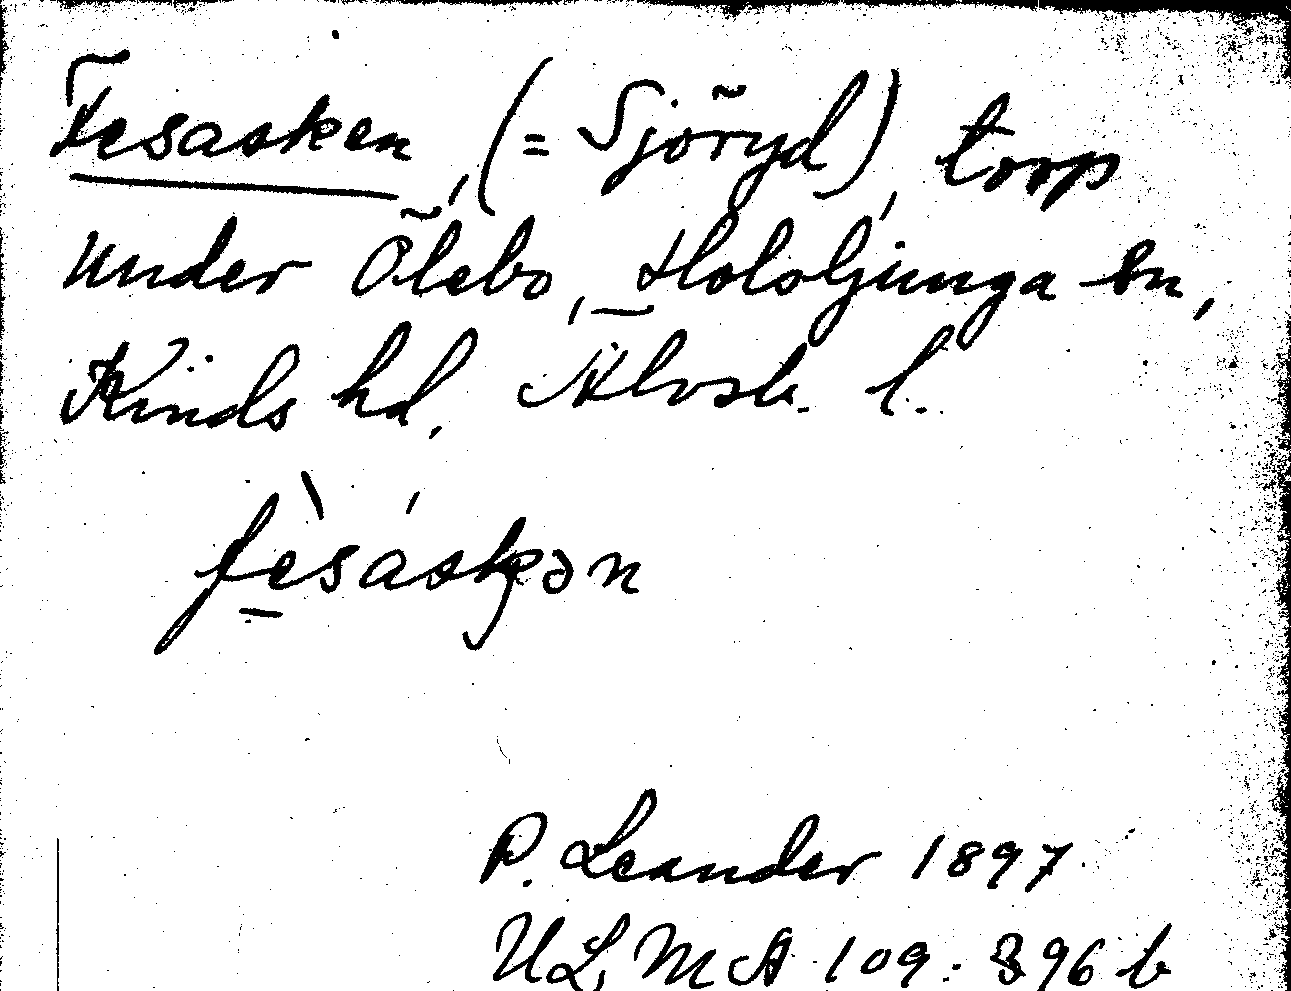 Fesasken, (= Sjöryd), torp
under Ölebo, Holsljunga sn,
Kinds hd, Älvsb. l.
fè̱sáskən
P. Leander 1897
ULMA 109:396 b